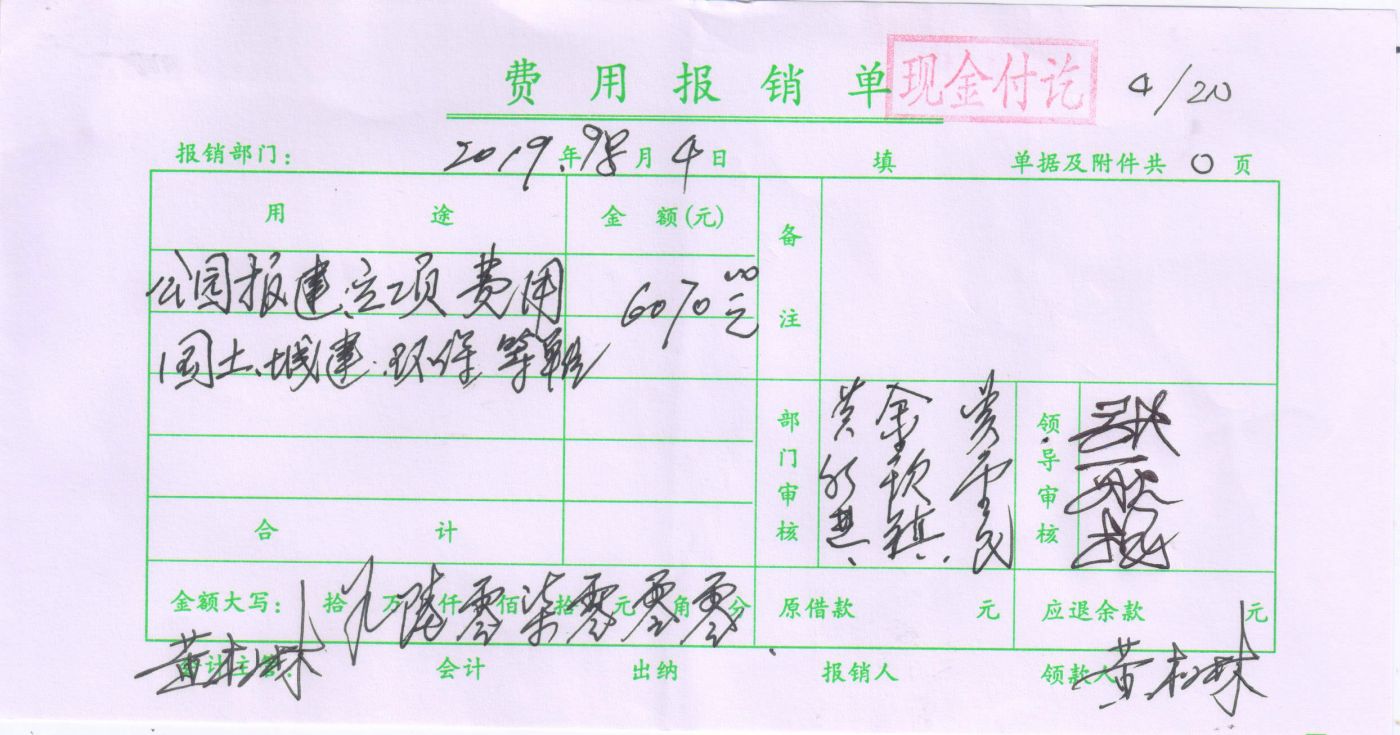 费用报销单 现金付讫 4/20
报销部门： 2019.年 月 4日 填 单据及附件共 0 页
用途 金额(元) 备注
公园报建、立项费用 6070.00元
国土、城建、环保等单位
部门审核 领导审核
合计
金额大写： 拾 万 陆 仟 零 佰 柒 拾 零 元 零 角 零 分 原借款 元 应退余款 元
会计主管： 会计 出纳 报销人 领款人